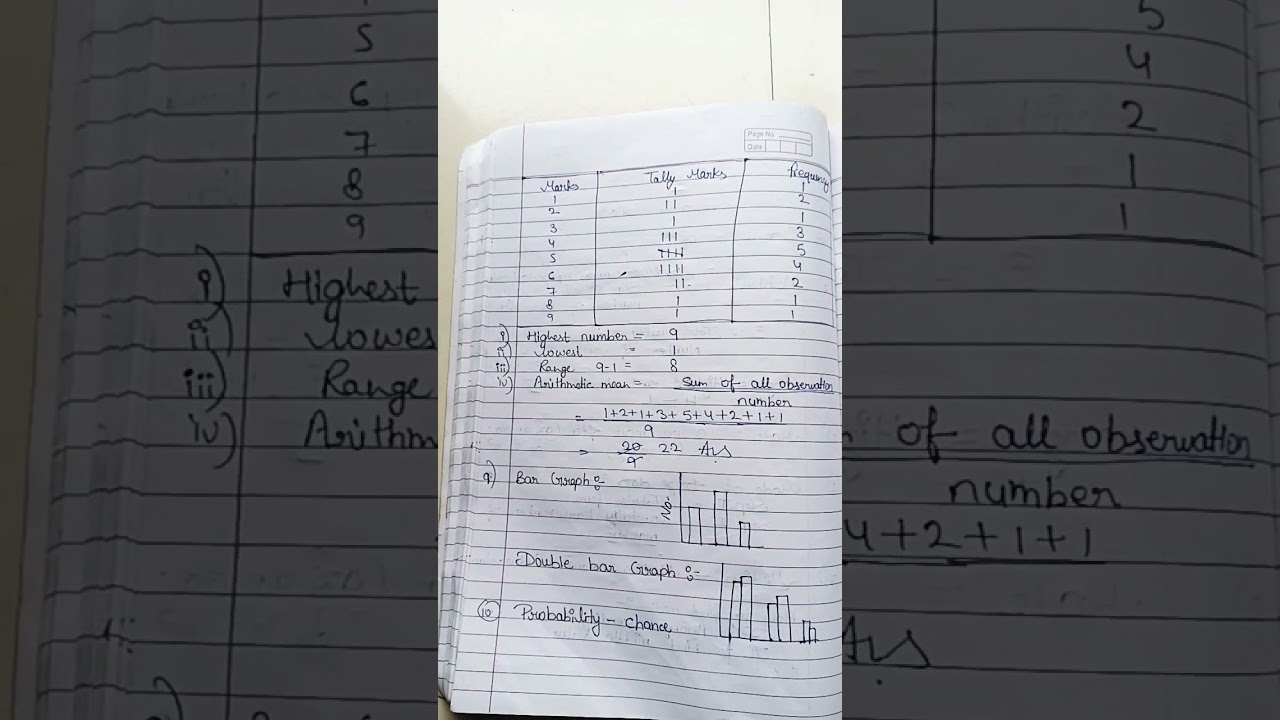 Page No
Date
Marks Tally Marks Frequency
1 | 1
2 || 2
3 | 1
4 ||| 3
5 5
6 |||| 4
7 || 2
8 | 1
9 | 1
i) Highest number = 9
ii) lowest = 1
iii) Range 9-1 = 8
iv) Arithmetic mean = Sum of all observation
number
= 1+2+1+3+5+4+2+1+1
9
= 20
9 22 Ans
9) Bar Graph :-
No.
Double bar Graph :-
10 Probability - chance
5
6
7
8
9
i) Highest
ii) lowes
iii) Range
iv) Arithm
5
4
2
1
1
of all observation
number
4+2+1+1
Ans